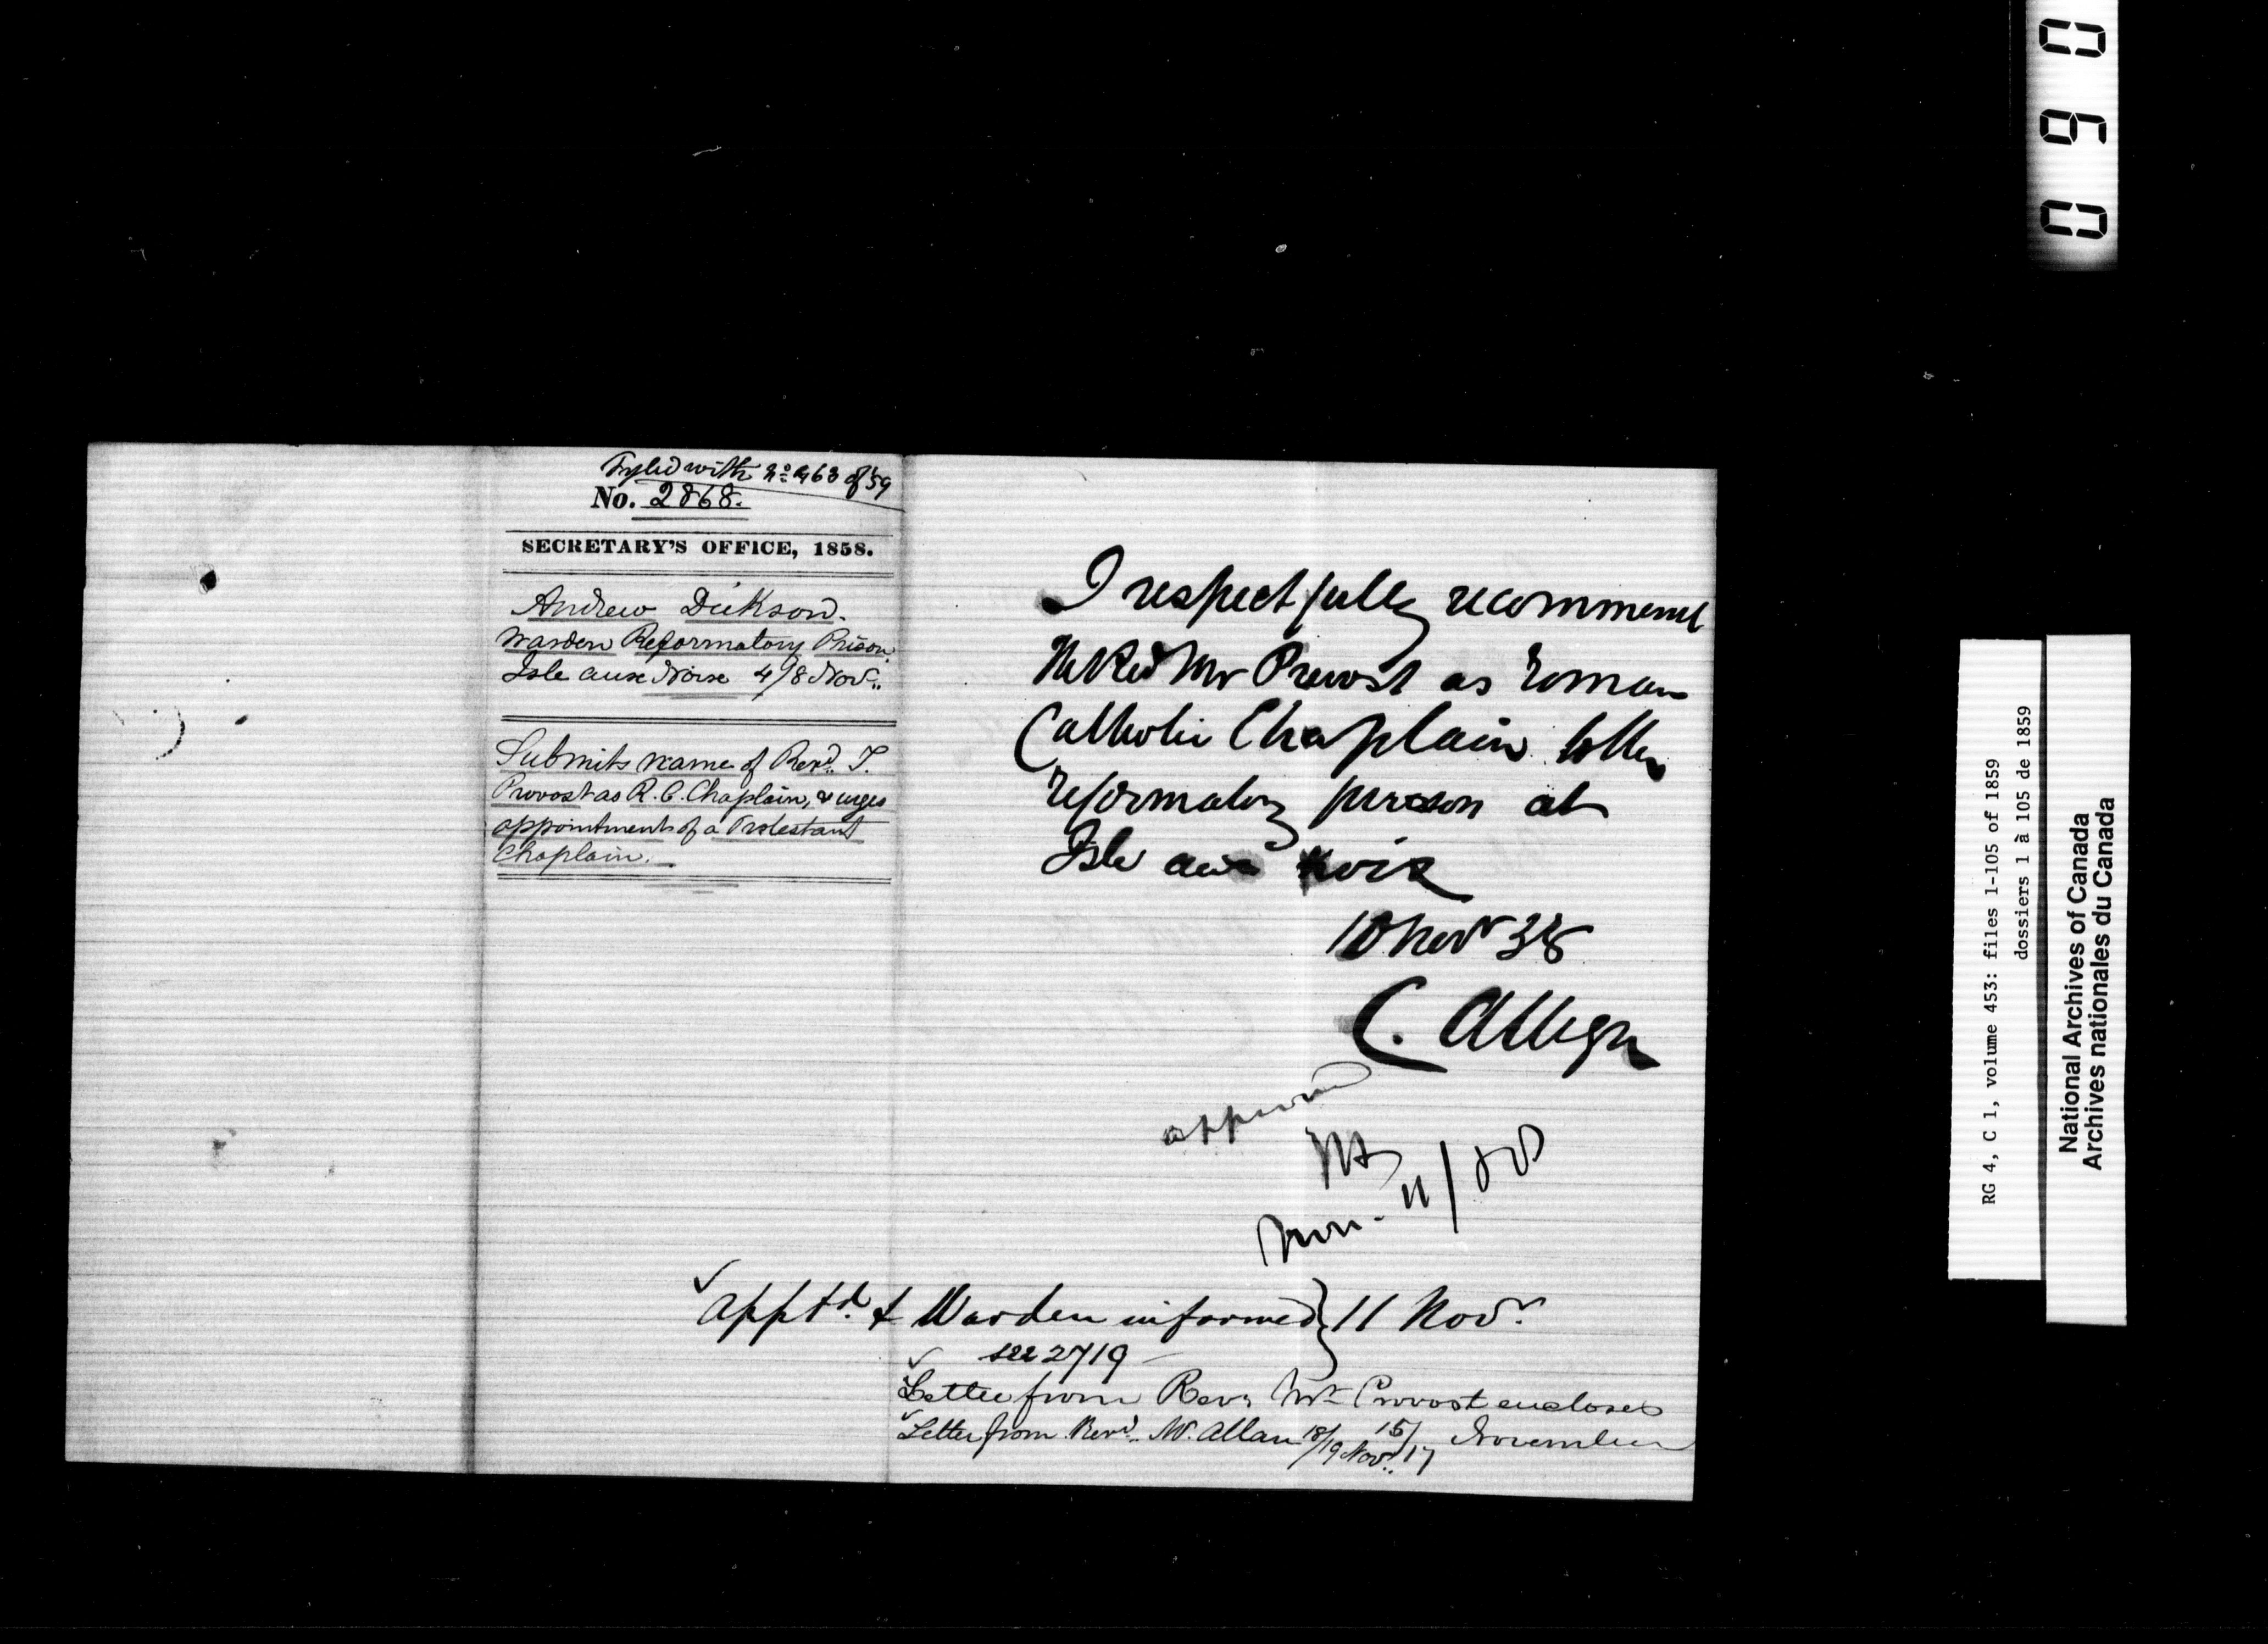 Fyled with No 463 of '59
No. 2868.
SECRETARY'S OFFICE, 1858.
Andrew Dickson.
Warden Reformatory Prison
Isle aux Noix 4/8 Novr.
Submits name of Revd. T.
Provost as R. C. Chaplain, & urges
appointment of a Protestant
Chaplain.
I respectfully recommend
the Revd Mr Prevost as Roman
Catholic Chaplain to the
reformatory prison at
Isle aux noix
10 Novr 58
C. Alleyn
approved
Nov. 11/58
✓
apptd. & Warden informed } 11 Novr.
see 2719
✓ Letter from Revd Mr Provost encloses
✓ Letter from Revd. Mr. Allan 18/19 Novr. 15/17 November
060
RG 4, C 1, volume 453: files 1-105 of 1859
dossiers 1 à 105 de 1859
National Archives of Canada
Archives nationales du Canada